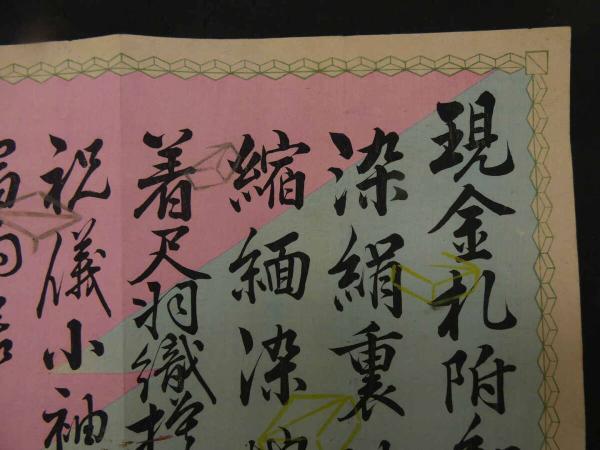 現金札附
染絹裏
縮緬染
着尺羽織
祝儀小袖